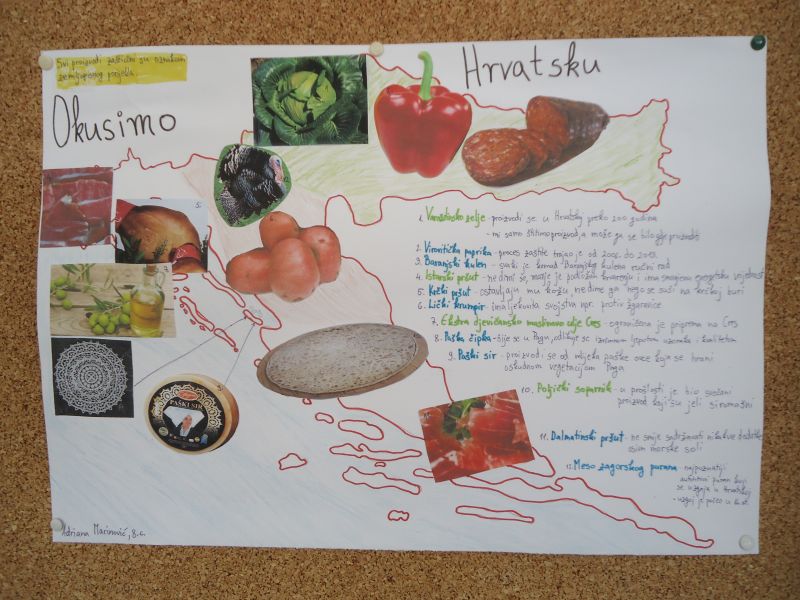 Svi proizvodi zaštićeni su oznakom
zemljopisnog porijekla
Okusimo
Hrvatsku
5.
7.
PAŠKI SIR
1. Varaždinsko zelje - proizvodi se u Hrvatskoj preko 200 godina
- mi samo štitimo proizvod, a može ga se bilo gdje proizvoditi
2. Virovitička paprika - proces zaštite trajao je od 2008. do 2013.
3. Baranjski kulen - svaki je komad Baranjskog kulena ručni rad
4. Istarski pršut - ne dimi se, manje je podložan kvarenju i ima smanjenu energetsku vrijednost
5. Krčki pršut - ostavljaju mu kožu, ne dime ga nego se suši na krčkoj buri
6. Lički krumpir - ima ljekovita svojstva npr. protiv žgaravice
7. Ekstra djevičansko maslinovo ulje Cres - ograničena je priprema na Cres
8. Paška čipka - šije se u Pagu, odlikuje se iznimnom ljepotom uzoraka i kvalitetom
9. Paški sir - proizvodi se od mlijeka paške ovce koja se hrani
oskudnom vegetacijom Paga
10. Poljički soparnik - u prošlosti je bio svečani
proizvod koji su jeli siromašni
11. Dalmatinski pršut - ne smije sadržavati nikakve dodatke
osim morske soli
12. Meso zagorskog purana - najpoznatiji
autohtoni puran koji
se uzgaja u Hrvatskoj
- uzgoj je počeo u 16. st.
Adriana Marinović, 8.c.